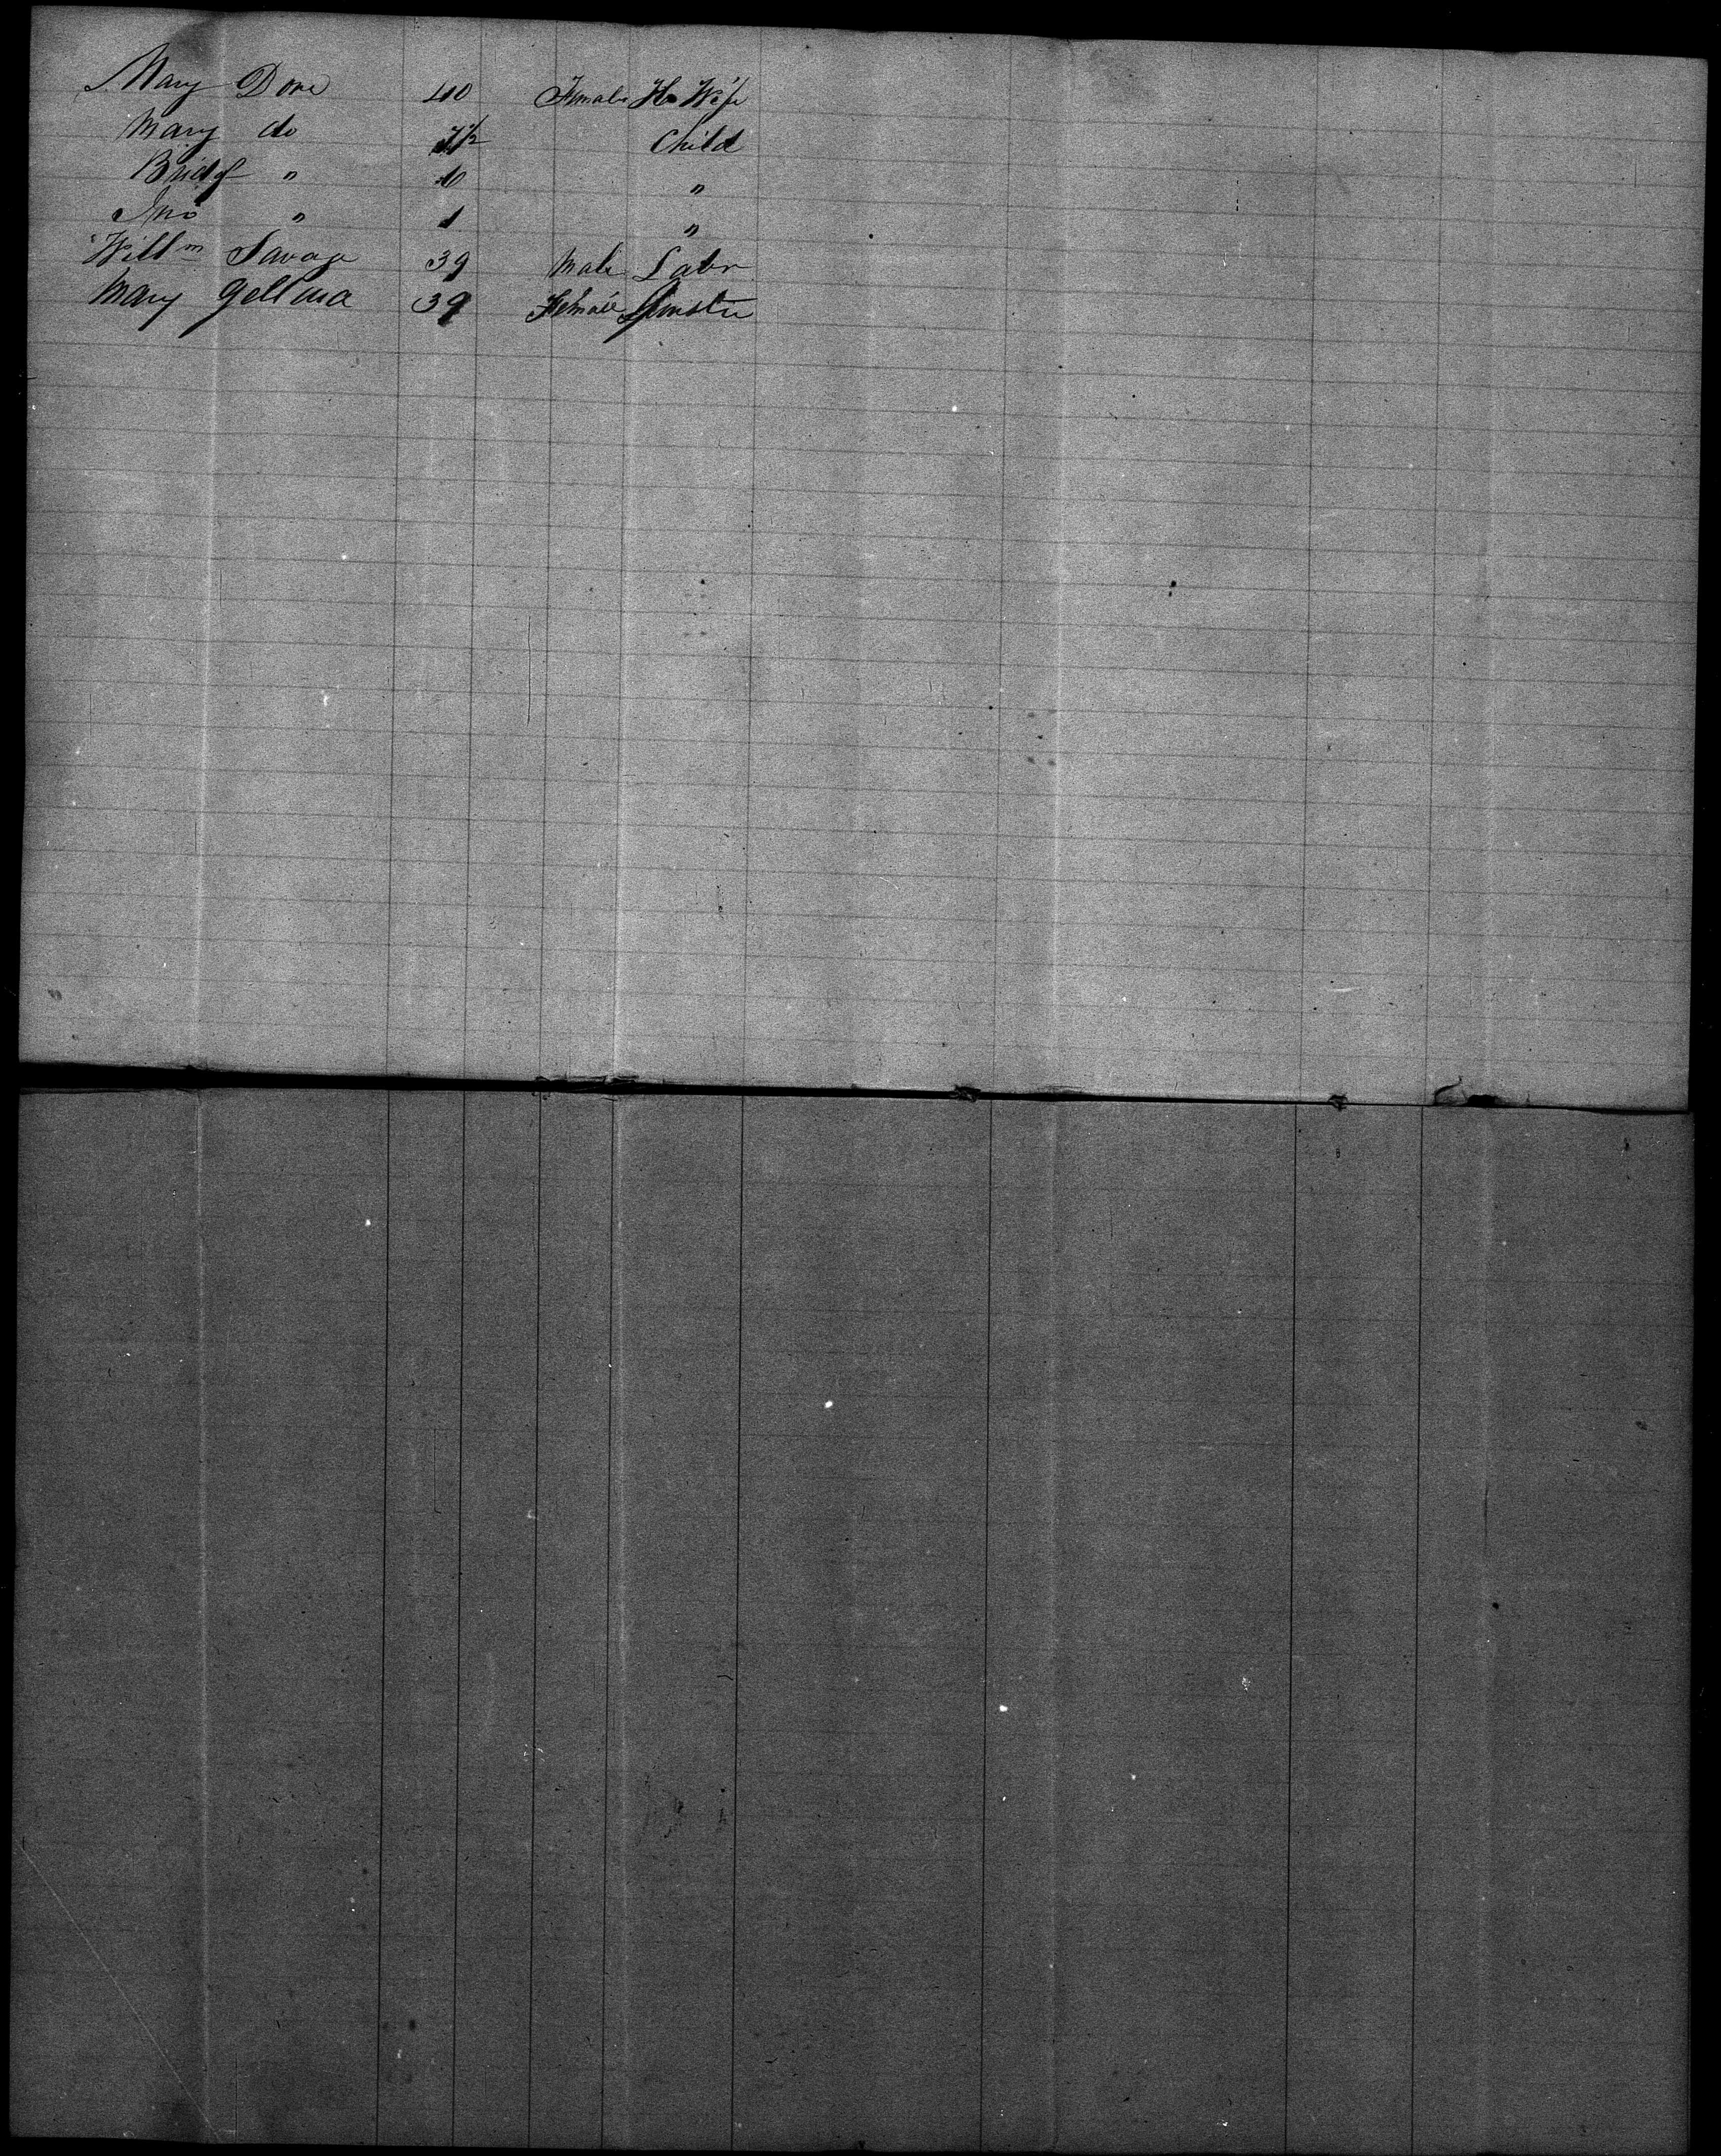 Mary Dore 40 Female Ho Wife
Mary do 7½ Child
Bridgt " "
Jno " 1 "
Willm Savage 39 Male Labr
Mary 39 Female